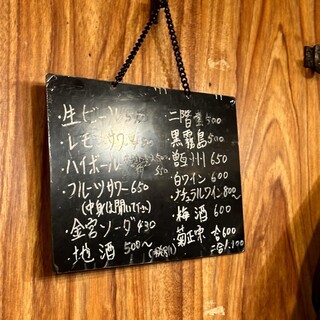 ・生(ビール)
・レモンサワー 450
・ハイボール
・フルーツサワー 650
(中身は聞いて下さい)
・金宮ソーダ 430
・地酒 500〜
(税別)
・二階堂 500
・黒霧島 500
650
・白ワイン 600
・ナチュラルワイン 800〜
・梅酒 600
・菊正宗 一合 600
二合 1,100